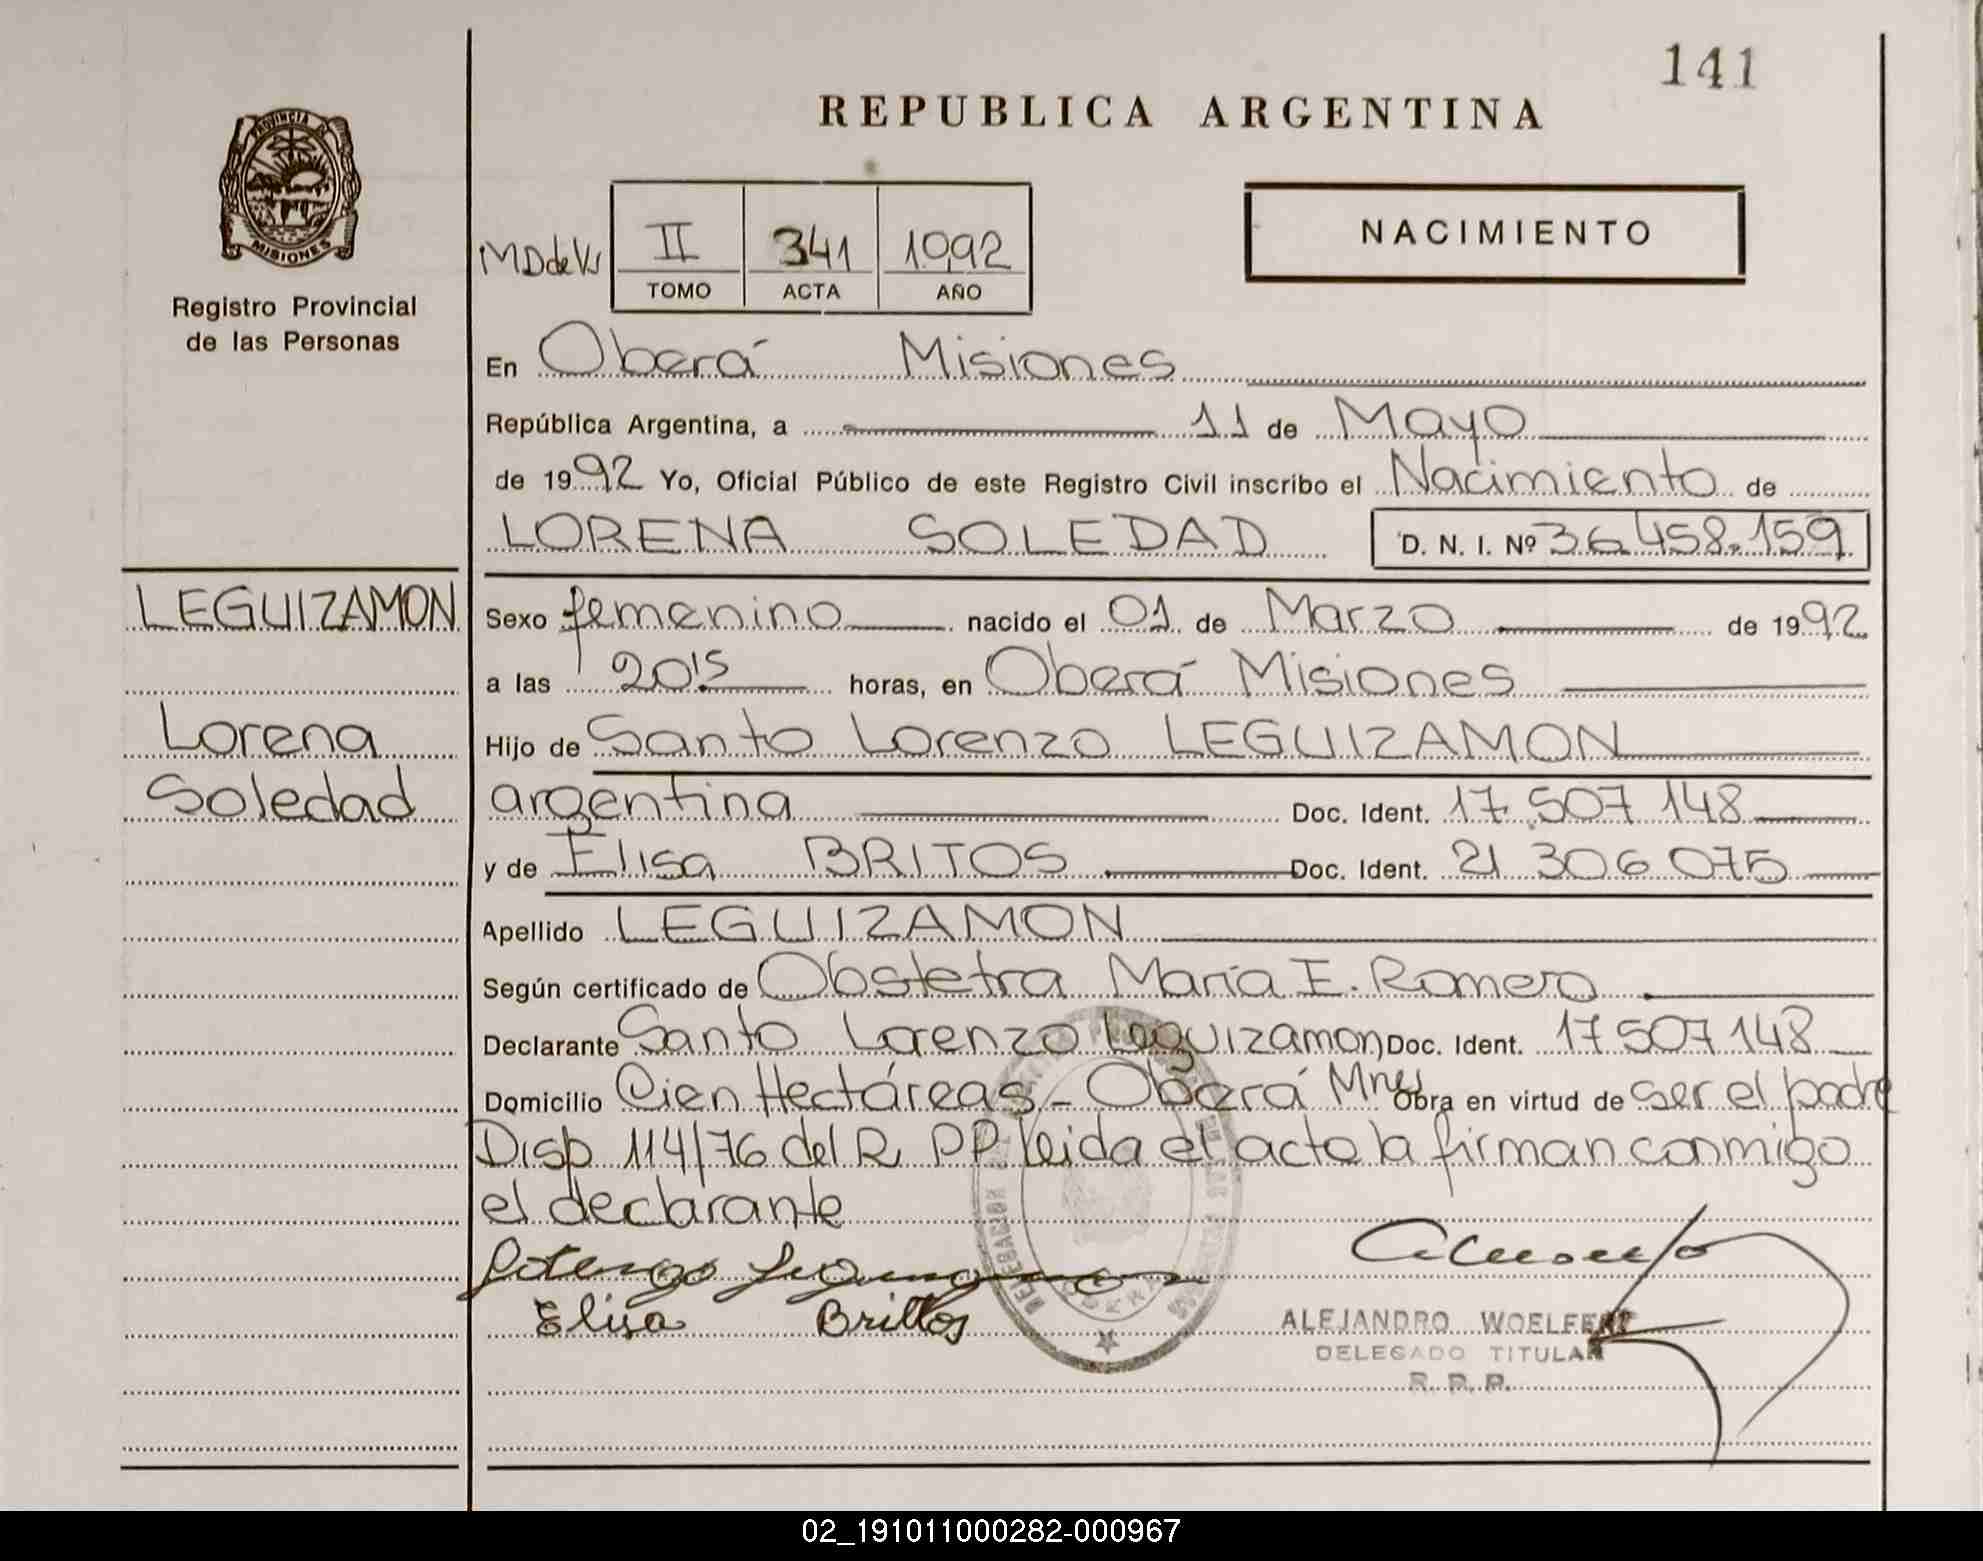 141
REPUBLICA ARGENTINA
PROVINCIA DE
MISIONES
Registro Provincial
de las Personas
NACIMIENTO
MD de Vs
II 341 1992
TOMO ACTA AÑO
En Oberá Misiones
República Argentina, a 11 de Mayo
de 1992 Yo, Oficial Público de este Registro Civil inscribo el Nacimiento de
LORENA SOLEDAD D. N. I. Nº 36.458.159
LEGUIZAMON
Lorena
Soledad
Sexo femenino nacido el 01 de Marzo de 1992
a las 20:15 horas, en Oberá Misiones
Hijo de Santo Lorenzo LEGUIZAMON
argentina Doc. Ident. 17.507 148
y de Elisa BRITOS Doc. Ident. 21 306 075
Apellido LEGUIZAMON
Según certificado de Obstetra María E. Romero
Declarante Santo Lorenzo Leguizamon Doc. Ident. 17 507 148
Domicilio Cien Hectáreas - Oberá Mnes Obra en virtud de ser el padre
Disp 114/76 del R P P leida el acta la firman conmigo
el declarante
Elisa Brittos
ALEJANDRO WOELFERT
DELEGADO TITULAR
R. P. P.
02_191011000282-000967